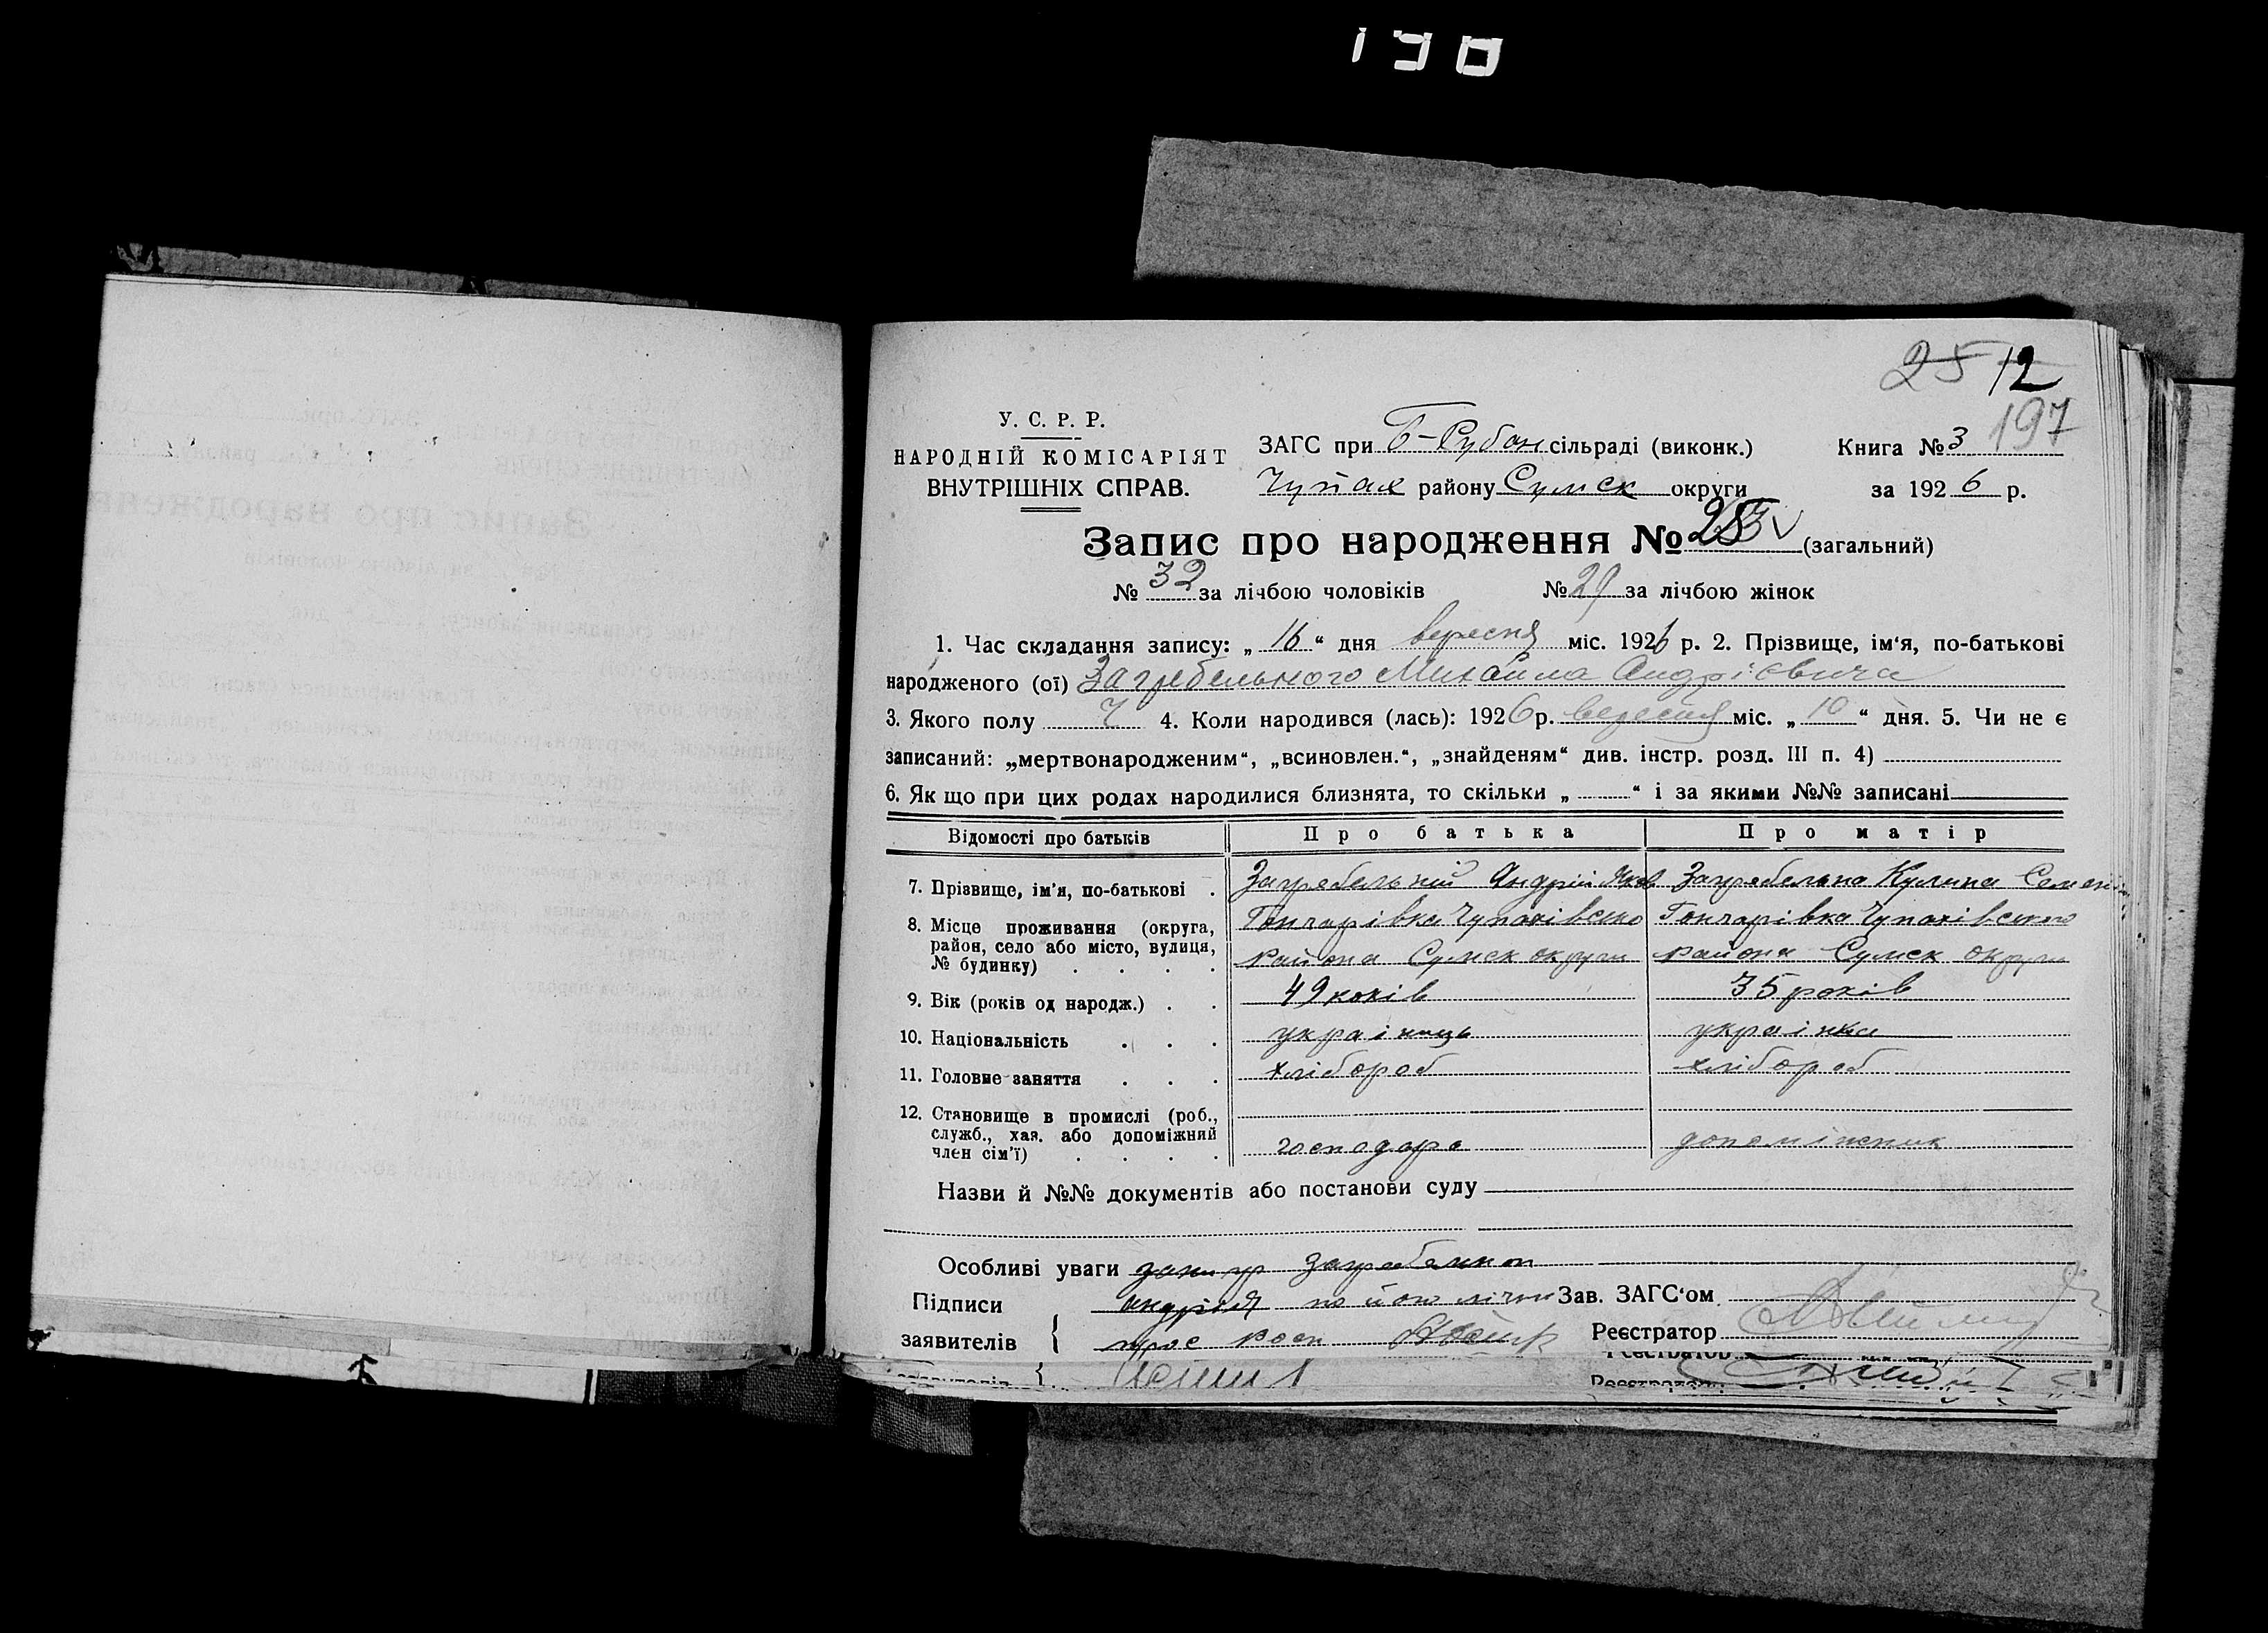 130
25 12
197
У. С. Р. Р.
НАРОДНІЙ КОМІСАРІЯТ
ВНУТРІШНІХ СПРАВ.
ЗАГС при Б-Рубан сільраді (виконк.) Книга № 3
Чупах району Сумск округи за 1926 р.
Запис про народження № (загальний)
№ 32 за лічбою чоловіків № 29 за лічбою жінок
1. Час складання запису: „16“ дня вересня міс. 1926 р. 2. Прізвище, ім‘я, по-батькові
народженого (ої) Загребельного Михайла Андрієвича
3. Якого полу Ч 4. Коли народився (лась): 1926 р. вересня міс. „10“ дня. 5. Чи не є
записаний: „мертвонародженим“, „всиновлен.“, „знайденям“ див. інстр. розд. III п. 4)
6. Як що при цих родах народилися близнята, то скільки „ “ і за якими №№ записані
Відомості про батьків Про батька Про матір
7. Прізвище, ім’я, по-батькові . Загребельний Андрій Яков Загребельна Кулина Семен
8. Місце проживання (округа, Гончарівка Чупахівсько Гончарівка Чупахівського
район, село або місто, вулиця,
№ будинку) . . . . района Сумск округи района Сумск округи
9. Вік (років од народж.) . . 49 років 35 років
10. Національність . . . українець українка
11. Головне заняття . . . хлібороб хлібороб
12. Становище в промислі (роб.,
служб., хаз. або допоміжний
член сім’ї) . . . . господарь допоміжник
Назви й №№ документів або постанови суду
Особливі уваги
Підписи Андрія по його Зав. ЗАГС‘ом
заявителів { прос росп Реєстратор
Реєстратор
заявителів } Реєстратор